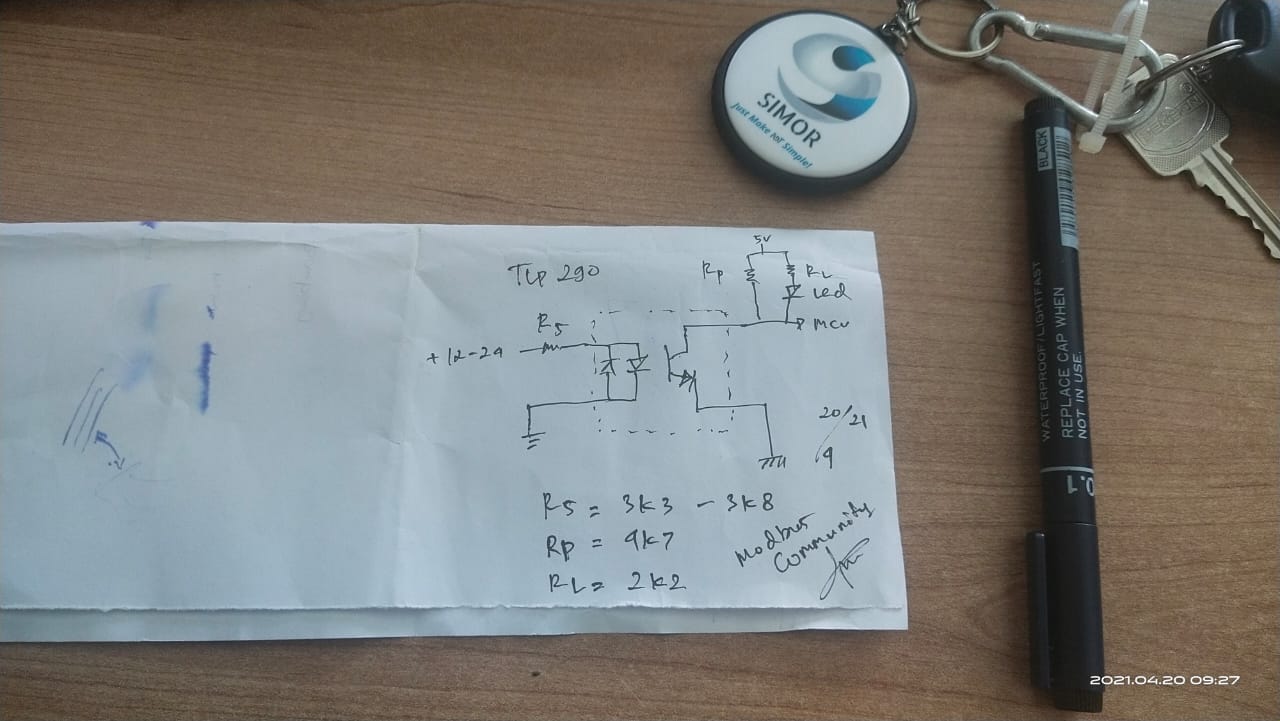 SIMOR
Just Make IIOT Simple!
BLACK
WATERPROOF/LIGHTFAST
REPLACE CAP WHEN
NOT IN USE.
0.1
TLP 290
5V
Rp
RL
Led
MCU
RS
+12-24
20/21
/4
RS = 3K3 - 3K8
Rp = 4K7
RL = 2K2
Modbus
Community
2021.04.20 09:27